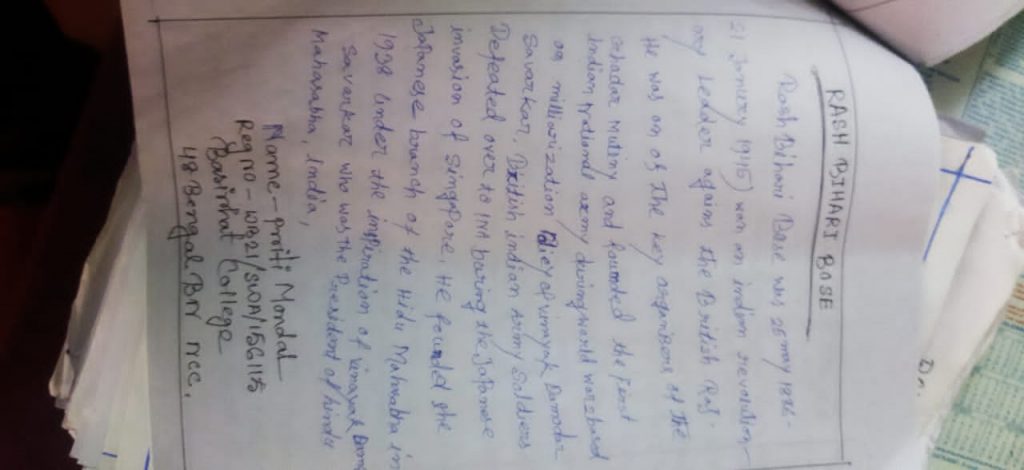 RASH BIHARI BOSE
Rash Bihari Bose was 25 may 1886-
21 January 1945) was an indian revolution-
ary Leader agains the British Raj.
He was on of The key organisers of the
Ghadar Mutiny and founded the First
Indian National army during world war 2 based
on millitarization Policy of Vinayak Damodar
Savarkar. British indian Army Soldiers
Defeated over to INA during the Japanese
invasion of Singapore, He founded the
Japanese branch of the Hidu Mahasabha in
1938 under the inspiration of Vinayak
Savarkar who was the President of hindu
Mahasabha, India,
Name - Priti Mondal
Reg no - WB21/SWDA/156115
Basirhat College
48 Bengal BN NCC.